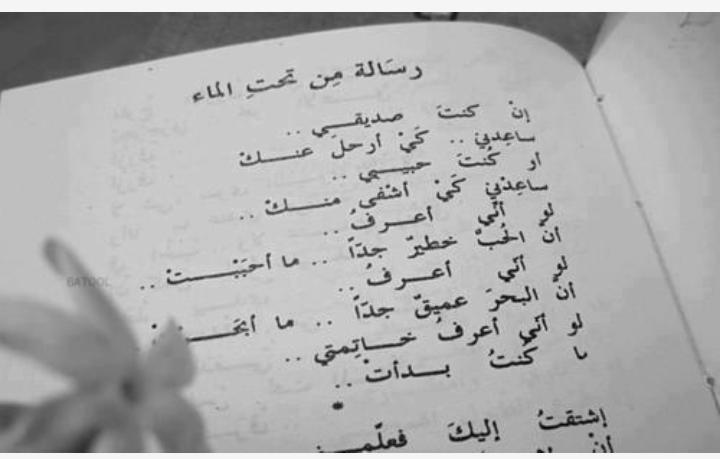 رسَالة مِن تحتِ الماء
إنْ كنتَ صديقي ..
ساعِدني .. كَيْ أرحلَ عنكْ
أو كُنتَ حبيبي ..
ساعِدْني كَيْ أشفى منكْ ..
لو أنّي أعرفُ ..
أنَّ الحُبَّ خطيرٌ جدّاً .. ما أحبَبْتْ ..
لو أنّي أعرفُ ..
أنَّ البحرَ عميقٌ جدّاً .. ما
لو أنّي أعرفُ خاتِمتي ..
ما كُنتُ بدأتْ ..
*
إشتقتُ إليكَ
أنْ
6ATOOL